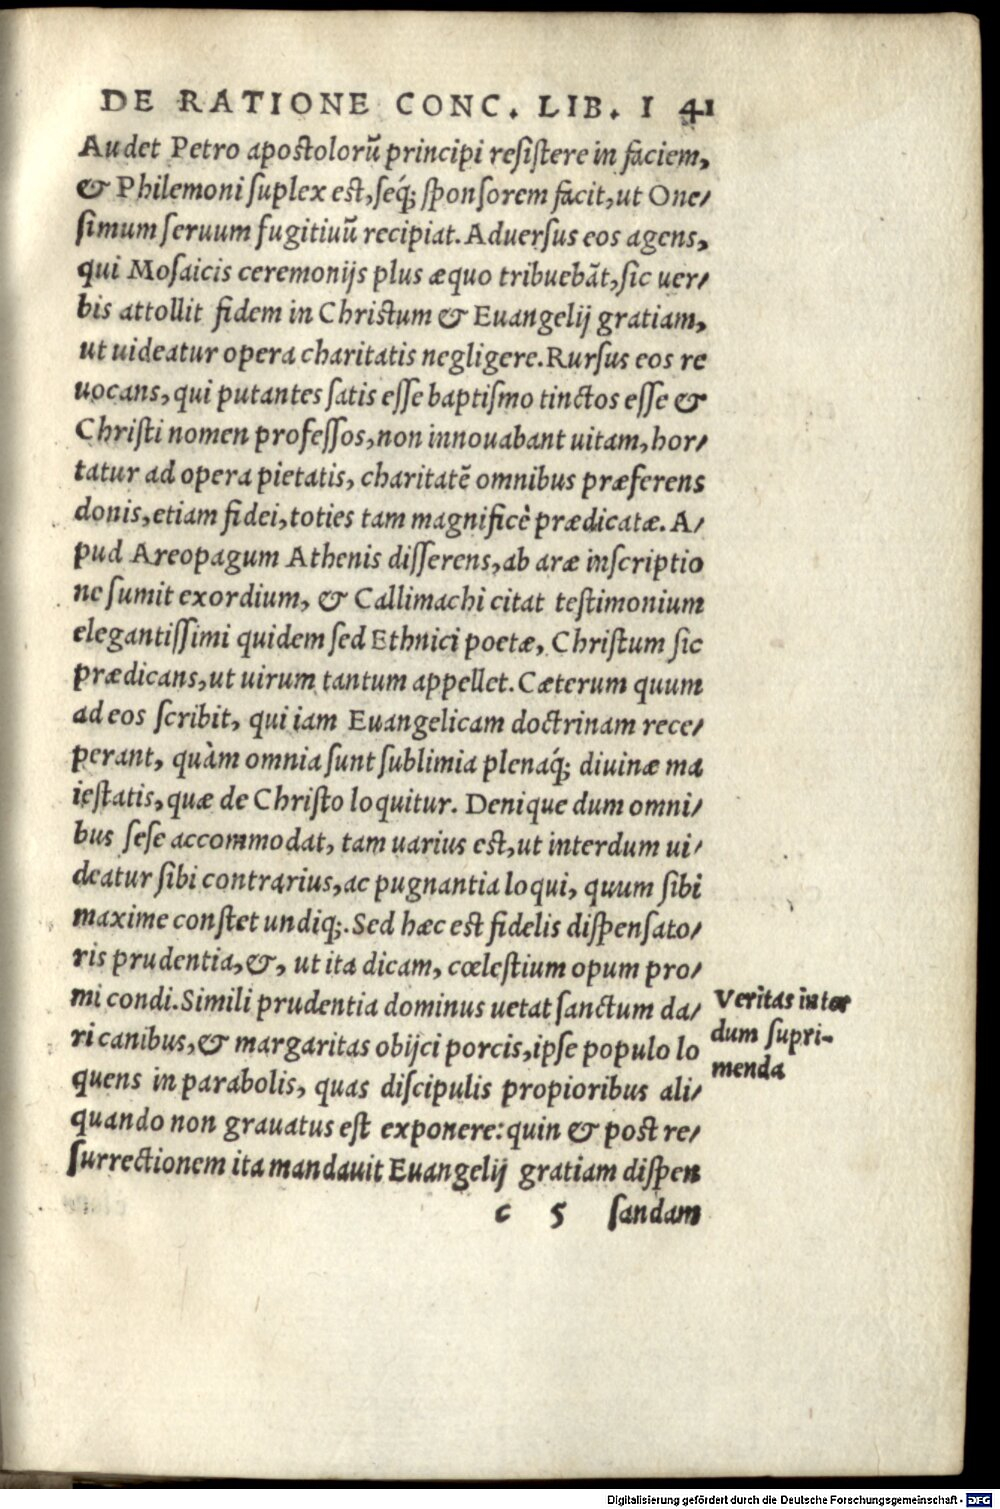 DE RATIONE CONC. LIB. I 41
Audet Petro apostolorū principi resistere in faciem,
& Philemoni suplex est, seq́; sponsorem facit, ut One/
simum seruum fugitiuū recipiat. Aduersus eos agens,
qui Mosaicis ceremonijs plus æquo tribuebāt, sic uer/
bis attollit fidem in Christum & Euangelij gratiam,
ut uideatur opera charitatis negligere. Rursus eos re
uocans, qui putantes satis esse baptismo tinctos esse &
Christi nomen professos, non innouabant uitam, hor/
tatur ad opera pietatis, charitatē omnibus præferens
donis, etiam fidei, toties tam magnificè prædicatæ. A/
pud Areopagum Athenis disserens, ab aræ inscriptio
ne sumit exordium, & Callimachi citat testimonium
elegantissimi quidem sed Ethnici poetæ, Christum sic
prædicans, ut uirum tantum appellet. Cæterum quum
ad eos scribit, qui iam Euangelicam doctrinam rece/
perant, quàm omnia sunt sublimia plenaq́; diuinæ ma
iestatis, quæ de Christo loquitur. Denique dum omni/
bus sese accommodat, tam uarius est, ut interdum ui/
deatur sibi contrarius, ac pugnantia loqui, quum sibi
maxime constet undiq;. Sed hæc est fidelis dispensato/
ris prudentia, &, ut ita dicam, cœlestium opum pro/
mi condi. Simili prudentia dominus uetat sanctum da/
ri canibus, & margaritas obijci porcis, ipse populo lo
quens in parabolis, quas discipulis propioribus ali/
quando non grauatus est exponere: quin & post re/
surrectionem ita mandauit Euangelij gratiam dispen
c 5 sandam
Veritas inter
dum supri-
menda
Digitalisierung gefördert durch die Deutsche Forschungsgemeinschaft - DFG